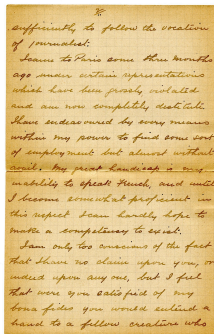 sufficiently to follow the vocation
of journalist.
I came to Paris some three months
ago under certain representations
which have been grossly violated
and am now completely destitute.
I have endeavoured by every means
within my power to find some sort
of employment but almost without
avail. My great handicap is my
inability to speak French, and until
I become somewhat proficient in
this respect I can hardly hope to
make a competency to exist.
I am only too conscious of the fact
that I have no claim upon you, or
indeed upon any one, but I feel
that were you satisfied of my
bona fides you would extend a
hand to a fellow creature who